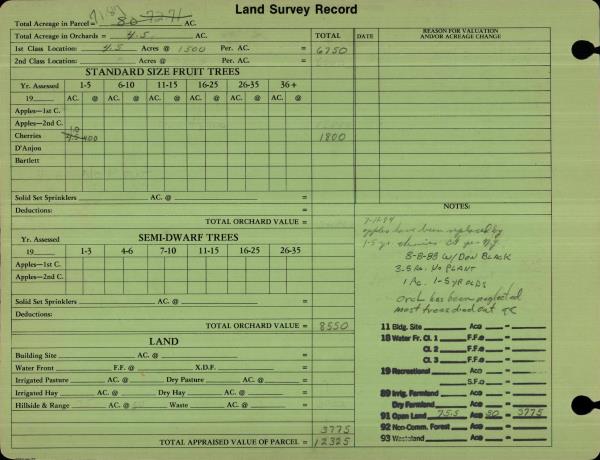 Land Survey Record
Total Acreage in Parcel= 71.87 80 7271 AC.
Total Acreage in Orchards = 4.5 AC. TOTAL DATE REASON FOR VALUATION AND/OR ACREAGE CHANGE
1st Class Location: 4.5 Acres @ 1500 Per. AC. 6750
2nd Class Location: Acres @ Per. AC.
STANDARD SIZE FRUIT TREES
Yr. Assessed 1-5 6-10 11-15 16-25 26-35 36+
19 AC. @ AC. @ AC. @ AC. @ AC. @ AC. @
Apples—1st C.
Apples—2nd C.
Cherries 4.5 400 1800
D'Anjou
Bartlett
Solid Set Sprinklers AC. @ =
Deductions:
TOTAL ORCHARD VALUE =
SEMI-DWARF TREES
Yr. Assessed
19 1-3 4-6 7-10 11-15 16-25 26-35
Apples—1st C. AC. @ AC. @ AC. @ AC. @ AC. @ AC. @
Apples—2nd C.
Solid Set Sprinklers AC. @ =
Deductions:
TOTAL ORCHARD VALUE = 8550
LAND
Building Site AC. @ =
Water Front F.F. @ X.D.F. =
Irrigated Pasture AC. @ Dry Pasture AC. @ =
Irrigated Hay AC. @ Dry Hay AC. @ =
Hillside & Range AC. @ Waste AC. @ =
3775
TOTAL APPRAISED VALUE OF PARCEL = 12325
NOTES:
apples have been replaced by
1-5 yr cherries
8-8-88 W/DON BLACK
3.5 AC. NO PLANT
1 AC. 1-5 YR OLDS
Orch has been neglected
most trees died out
11 Bldg. Site Ac@ =
18 Water Fr. Cl. 1 F.F@ =
Cl. 2 F.F@ =
Cl. 3 F.F@ =
19 Recreational Ac@ =
S.F@ =
89 Irrig. Farmland Ac@ =
Dry Farmland Ac@ =
91 Open Land 75.5 Ac@ 50 = 3775
92 Non-Comm. Forest Ac@ =
93 Wasteland Ac@ =